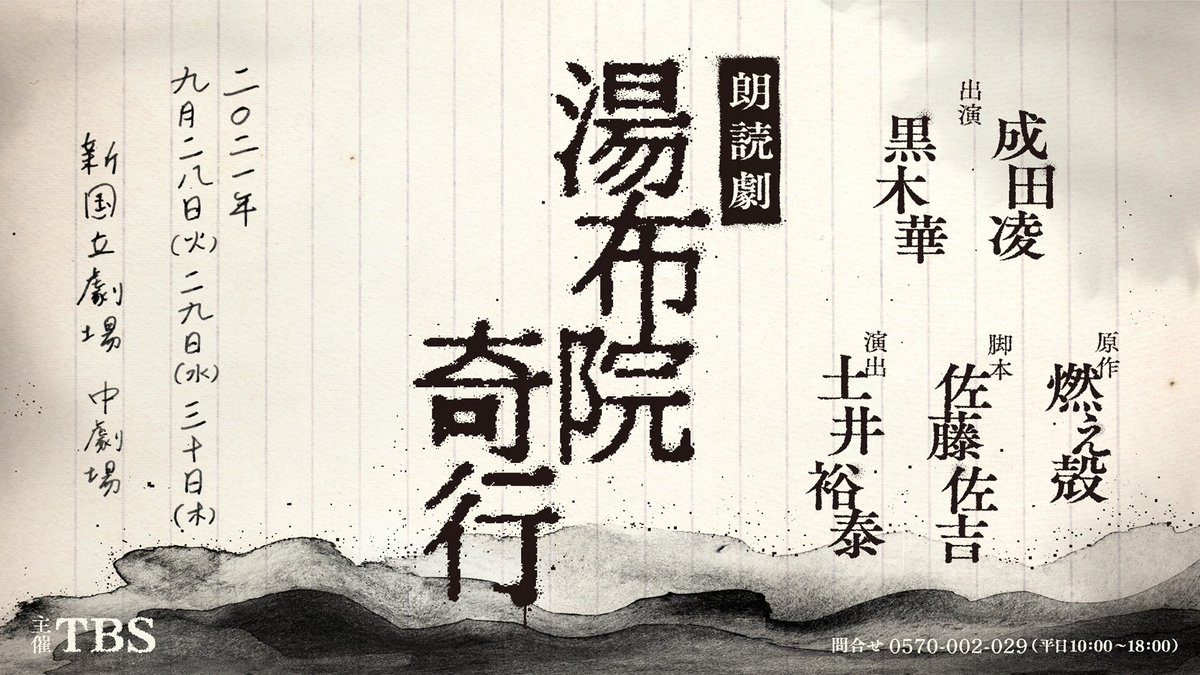 原作
燃え殻
脚本
佐藤佐吉
演出
土井裕泰
出演
成田凌
黒木華
朗読劇
湯布院
奇行
二〇二一年
九月二八日(火)二九日(水)三十日(木)
新国立劇場 中劇場
主催 TBS
問合せ 0570-002-029(平日10:00~18:00)